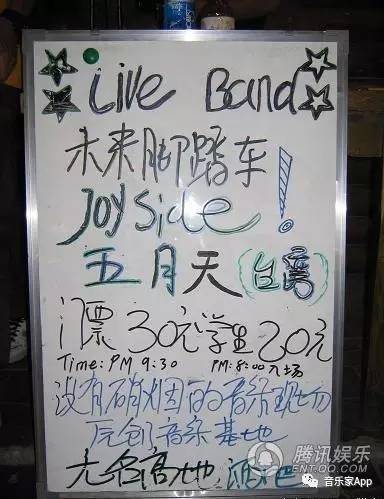 Live Band
未来脚踏车
Joyside!
五月天(台湾)
门票30元学生20元
Time: PM 9:30 PM: 8:00入场
没有硝烟的音乐现场
原创音乐基地
无名高地酒吧
腾讯娱乐
ENT.QQ.COM
音乐家App